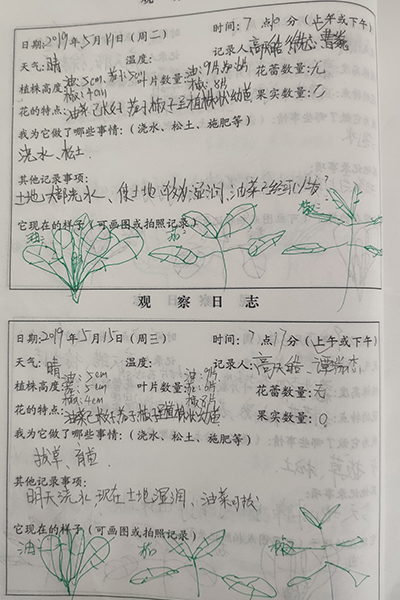 日期:2019年5月14日(周二) 时间:7点10分(上午或下午)
天气:晴 温度: 记录人:高天皓
植株高度:油:5cm 茄:5cm 椒:4cm 叶片数量:油:9片 茄:6片 椒:8片 花蕾数量:无
花的特点:油菜已 茄子 椒子 幼苗 果实数量:0
我为它做了哪些事情:(浇水、松土、施肥等)
浇水、松土
其他记录事项:
土地 浇水、使土地 湿润,油菜已经可以
它现在的样子(可画图或拍照记录)
油: 茄: 椒:
观察日志
日期:2019年5月15日(周三) 时间:7点17分(上午或下午)
天气:晴 温度: 记录人:高天皓
植株高度:油:5cm 茄:5cm 椒:4cm 叶片数量:油:9片 茄:6片 椒:8片 花蕾数量:无
花的特点:油菜已 茄子 椒子 幼苗 果实数量:0
我为它做了哪些事情:(浇水、松土、施肥等)
拔草、
其他记录事项:
明天浇水,现在土地湿润、油菜可
它现在的样子(可画图或拍照记录)
油 茄 椒